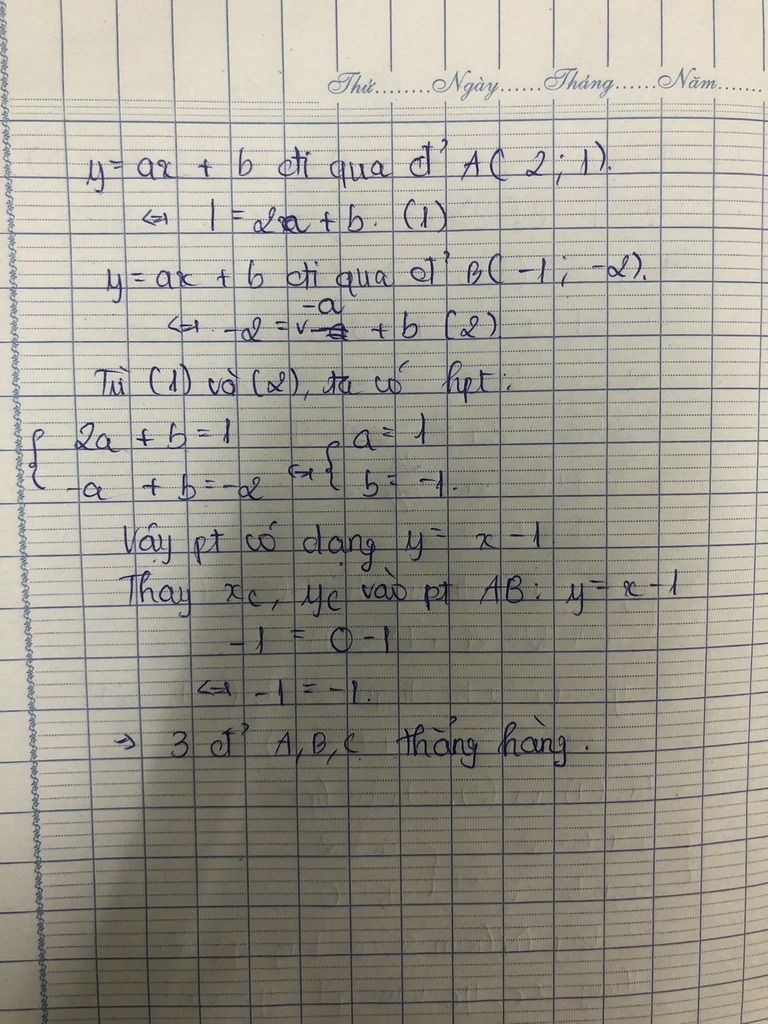 Thứ........Ngày......Tháng......Năm.......
y = ax + b đi qua đ' A( 2 ; 1).
⇔ 1 = 2a + b. (1)
y = ax + b đi qua đ' B( -1 ; -2).
-a
⇔ -2 = + b (2)
Từ (1) và (2), ta có hpt:
{ 2a + b = 1 ⇔ { a = 1
-a + b = -2 b = -1.
Vậy pt có dạng y = x - 1
Thay xC, yC vào pt AB: y = x - 1
-1 = 0 - 1
⇔ -1 = -1.
→ 3 đ' A, B, C thẳng hàng.